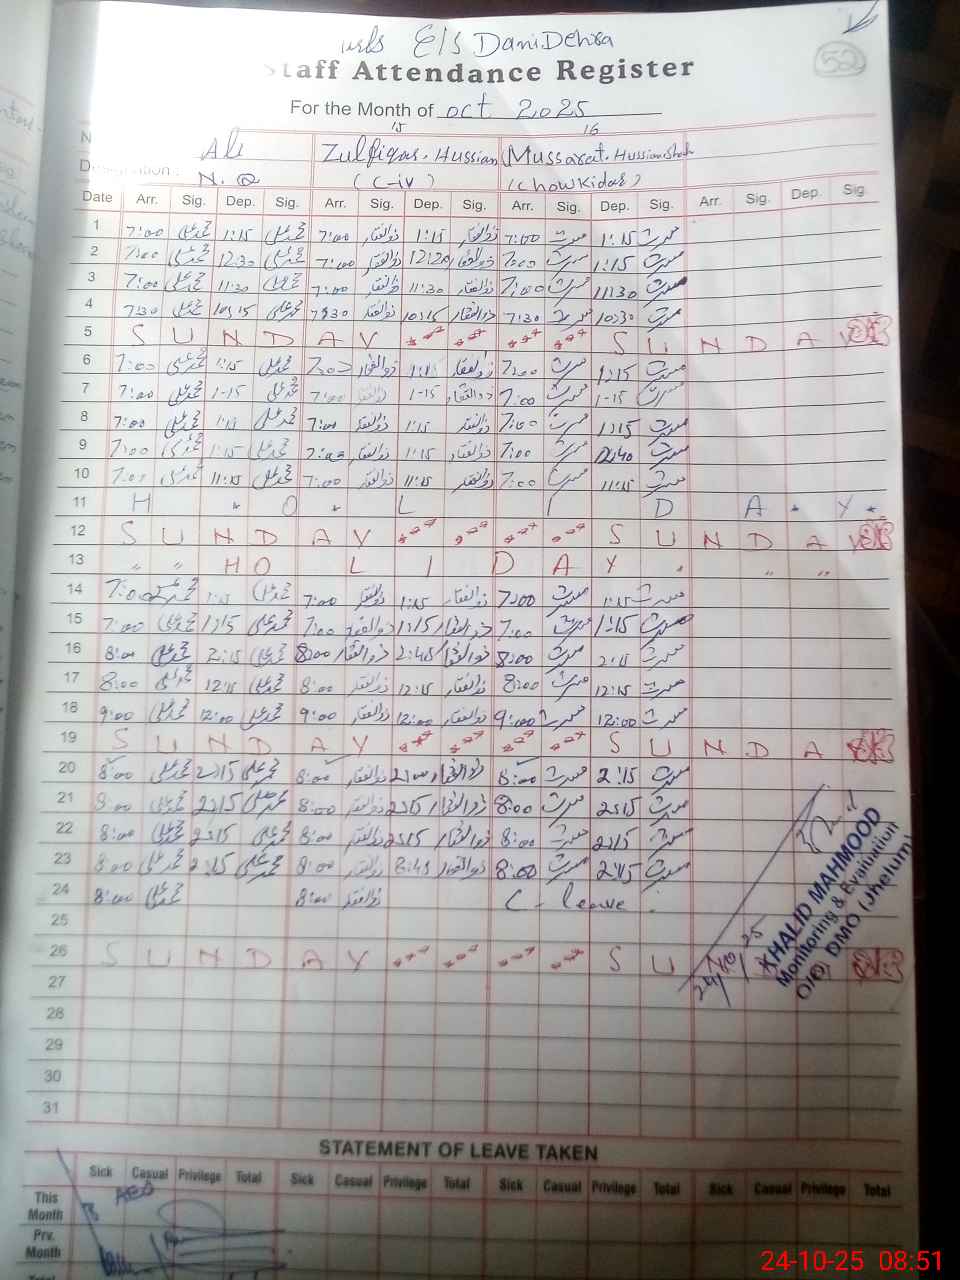 E/S Dani Dehra
Staff Attendance Register
52
For the Month of oct 2025
15 16
Ali Zulfiqar. Hussian Mussarat. Hussian Shah
N. Q (C-iv) (Chowkidar)
Date Arr. Sig. Dep. Sig. Arr. Sig. Dep. Sig. Arr. Sig. Dep. Sig. Arr. Sig. Dep. Sig.
1 7:00 محمد علی 1:15 محمد علی 7:00 ذوالفقار 1:15 ذوالفقار 7:00 مسرت 1:15 مسرت
2 7:00 محمد علی 12:30 محمد علی 7:00 ذوالفقار 12:20 ذوالفقار 7:00 مسرت 1:15 مسرت
3 7:00 محمد علی 11:30 محمد علی 7:00 ذوالفقار 11:30 ذوالفقار 7:00 مسرت 11:30 مسرت
4 7:30 محمد علی 10:15 محمد علی 7:30 ذوالفقار 10:15 ذوالفقار 7:30 مسرت 10:30 مسرت
5 S U N D A Y S U N D A Y
6 7:00 محمد علی 1:15 محمد علی 7:00 ذوالفقار 1:15 ذوالفقار 7:00 مسرت 1:15 مسرت
7 7:00 محمد علی 1-15 محمد علی 7:00 ذوالفقار 1-15 ذوالفقار 7:00 مسرت 1-15 مسرت
8 7:00 محمد علی 1:15 محمد علی 7:00 ذوالفقار 1:15 ذوالفقار 7:00 مسرت 1:15 مسرت
9 7:00 محمد علی 1:15 محمد علی 7:00 ذوالفقار 1:15 ذوالفقار 7:00 مسرت 12:40 مسرت
10 7:00 محمد علی 11:15 محمد علی 7:00 ذوالفقار 11:15 ذوالفقار 7:00 مسرت 11:15 مسرت
11 H O L I D A Y
12 S U N D A Y S U N D A Y
13 " " H O L I D A Y " " "
14 7:00 محمد علی 1:15 محمد علی 7:00 ذوالفقار 1:15 ذوالفقار 7:00 مسرت 1:15 مسرت
15 7:00 محمد علی 1:15 محمد علی 7:00 ذوالفقار 1:15 ذوالفقار 7:00 مسرت 1:15 مسرت
16 8:00 محمد علی 2:15 محمد علی 8:00 ذوالفقار 2:45 ذوالفقار 8:00 مسرت 2:15 مسرت
17 8:00 محمد علی 12:15 محمد علی 8:00 ذوالفقار 12:15 ذوالفقار 8:00 مسرت 12:15 مسرت
18 9:00 محمد علی 12:00 محمد علی 9:00 ذوالفقار 12:00 ذوالفقار 9:00 مسرت 12:00 مسرت
19 S U N D A Y S U N D A
20 8:00 محمد علی 2:15 محمد علی 8:00 ذوالفقار ذوالفقار 8:00 مسرت 2:15 مسرت
21 8:00 محمد علی 2:15 محمد علی 8:00 ذوالفقار 2:15 ذوالفقار 8:00 مسرت 2:15 مسرت
22 8:00 محمد علی 2:15 محمد علی 8:00 ذوالفقار 2:15 ذوالفقار 8:00 مسرت 2:15 مسرت
23 8:00 محمد علی 2:15 محمد علی 8:00 ذوالفقار 2:45 ذوالفقار 8:00 مسرت 2:45 مسرت
24 8:00 محمد علی 8:00 ذوالفقار C - leave
25
26 S U N D A Y S U N
27
28
29
30
31
KHALID MAHMOOD
Monitoring & Evaluation
O/O DMO (Jhelum)
STATEMENT OF LEAVE TAKEN
Sick Casual Privilege Total Sick Casual Privilege Total Sick Casual Privilege Total Sick Casual Privilege Total
This Month AEO
Prv. Month
Total
24-10-25 08:51